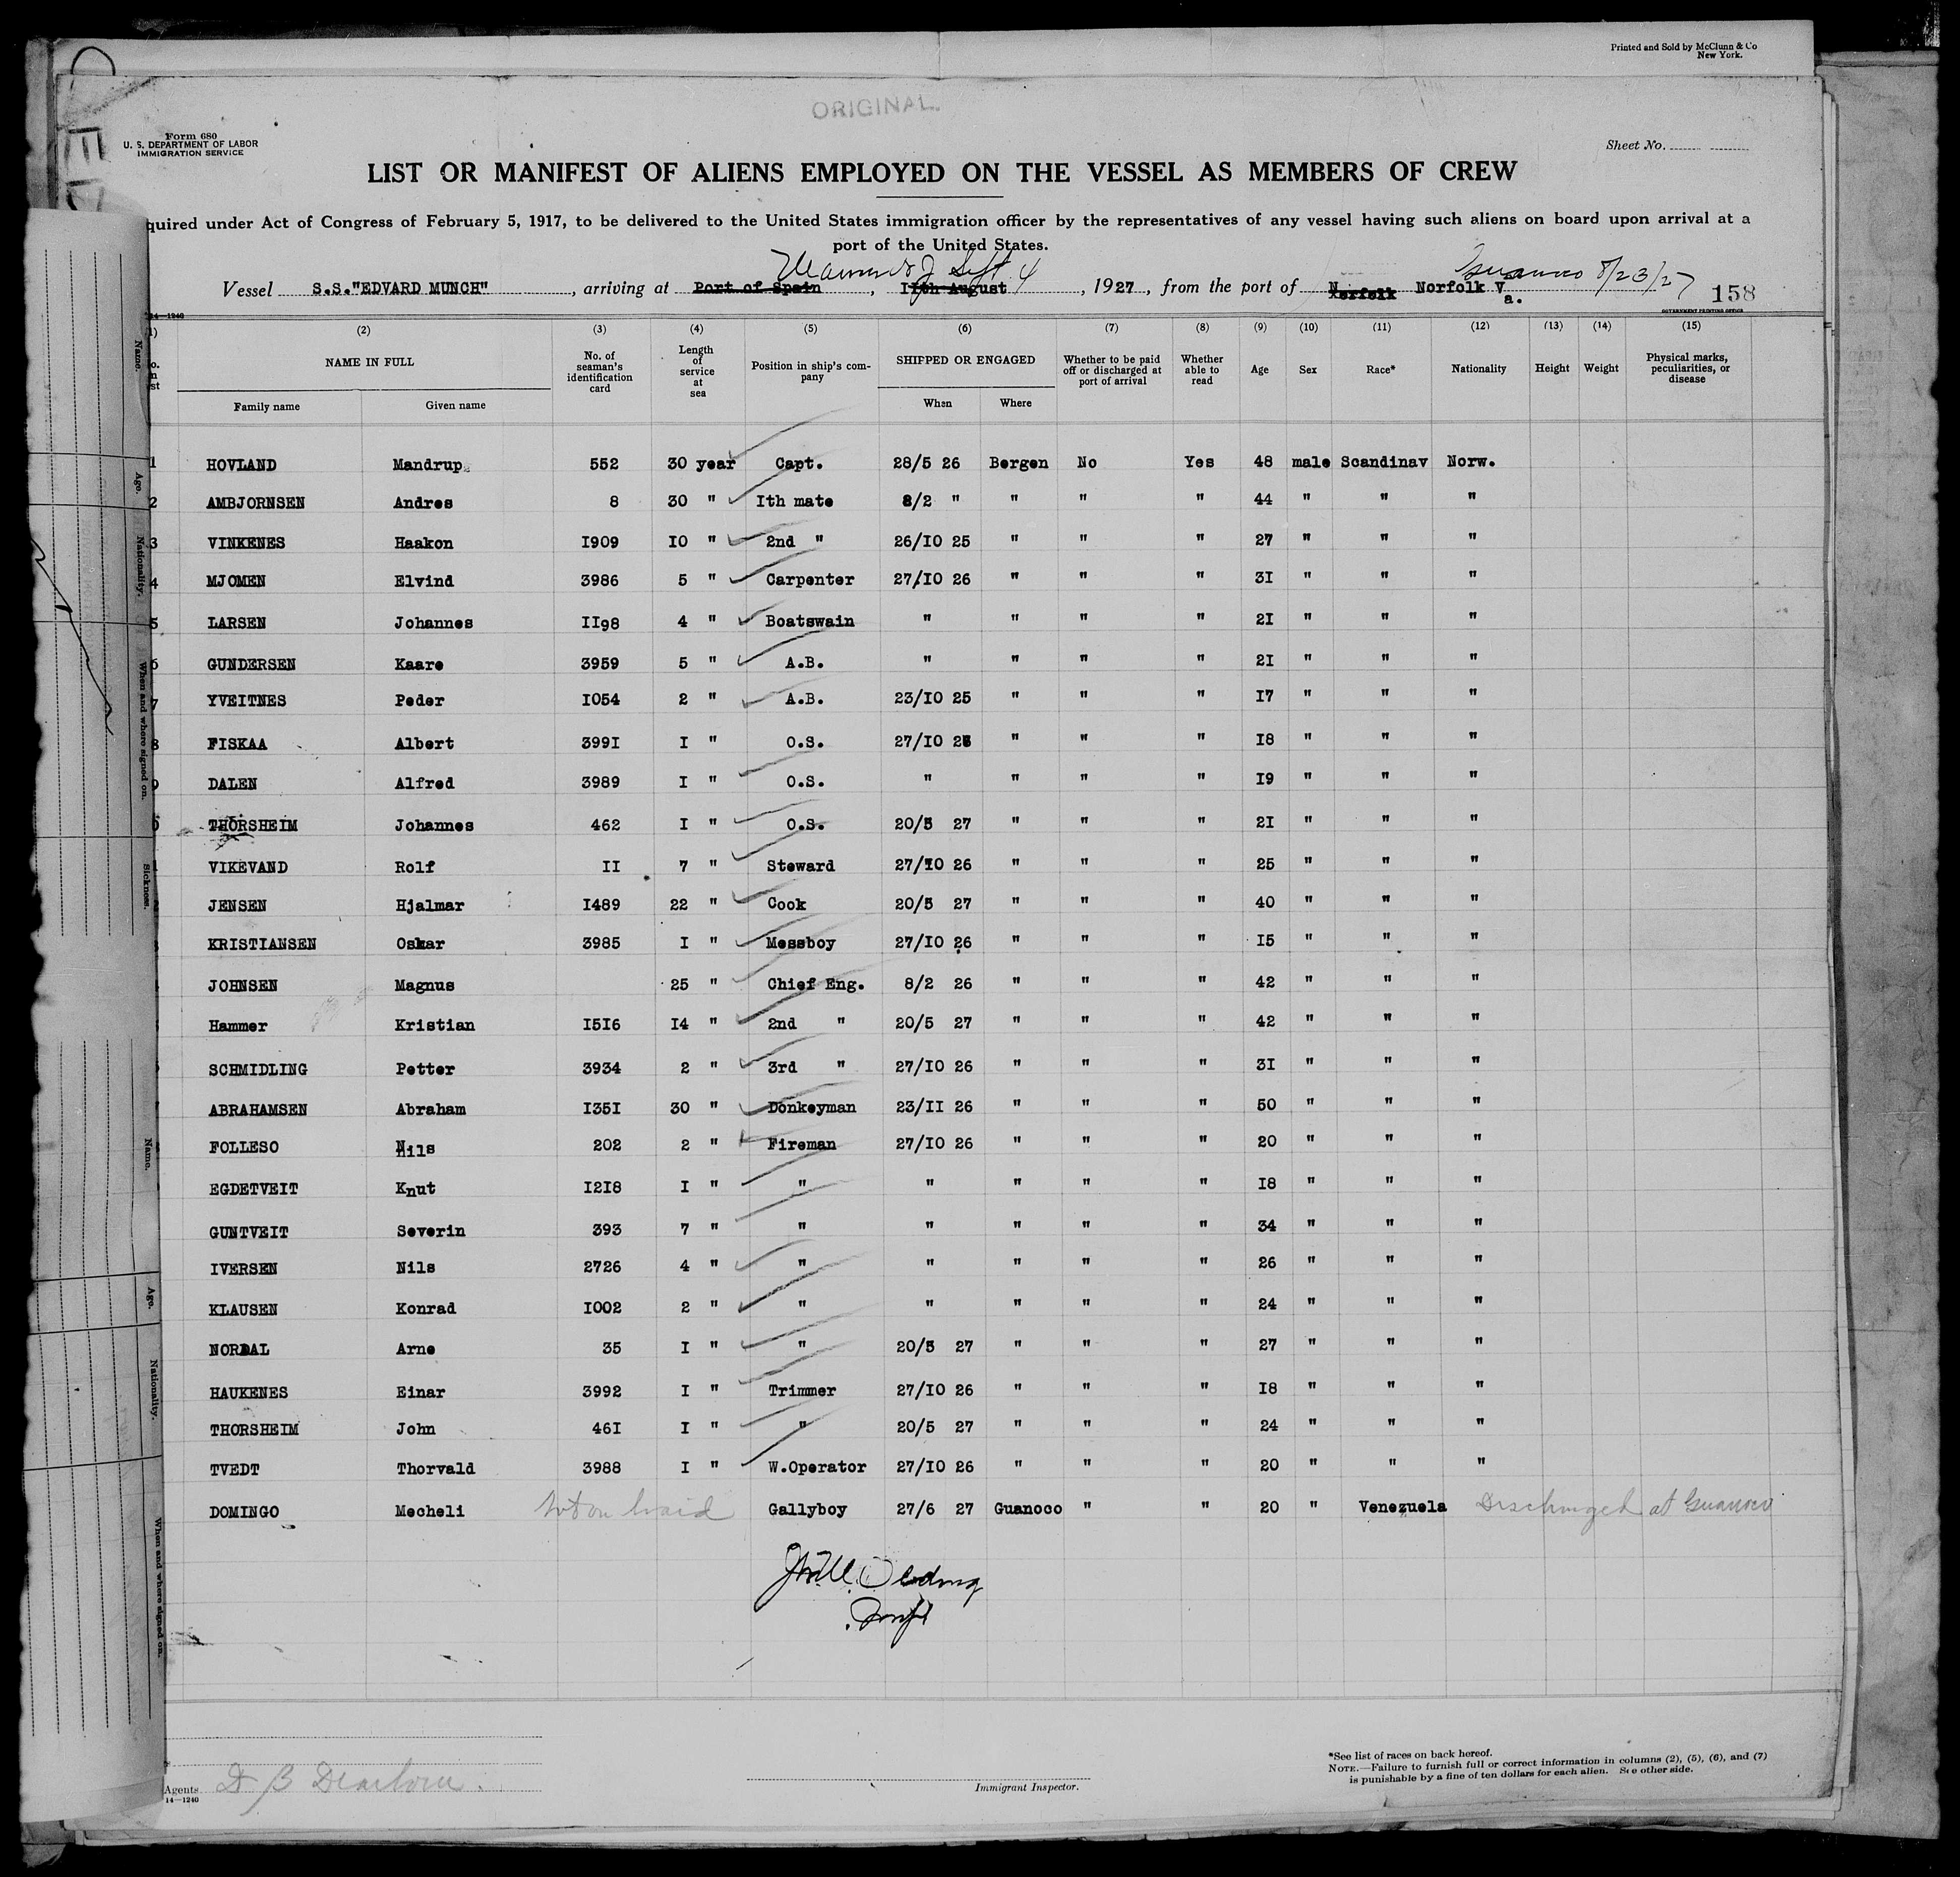 Printed and Sold by McClunn & Co
New York.
ORIGINAL.
Form 680
U. S. DEPARTMENT OF LABOR
IMMIGRATION SERVICE
Sheet No.
LIST OR MANIFEST OF ALIENS EMPLOYED ON THE VESSEL AS MEMBERS OF CREW
quired under Act of Congress of February 5, 1917, to be delivered to the United States immigration officer by the representatives of any vessel having such aliens on board upon arrival at a
port of the United States.
Sept. 4 Guanoco 8/23/27
Vessel S.S."EDVARD MUNCH", arriving at Port of Spain, IIth August, 1927, from the port of Norfolk Norfolk Va. 158
14—1240 GOVERNMENT PRINTING OFFICE
(1) (2) (3) (4) (5) (6) (7) (8) (9) (10) (11) (12) (13) (14) (15)
NAME IN FULL No. of seaman's identification card Length of service at sea Position in ship's company SHIPPED OR ENGAGED Whether to be paid off or discharged at port of arrival Whether able to read Age Sex Race* Nationality Height Weight Physical marks, peculiarities, or disease
Family name Given name When Where
1 HOVLAND Mandrup 552 30 year Capt. 28/5 26 Bergen No Yes 48 male Scandinav Norw.
2 AMBJORNSEN Andres 8 30 " Ith mate 8/2 " " " " 44 " " "
3 VINKENES Haakon I909 I0 " 2nd " 26/I0 25 " " " 27 " " "
4 MJOMEN Elvind 3986 5 " Carpenter 27/I0 26 " " " 3I " " "
5 LARSEN Johannes II98 4 " Boatswain " " " " 2I " " "
6 GUNDERSEN Kaare 3959 5 " A.B. " " " " 2I " " "
7 YVEITNES Peder I054 2 " A.B. 23/I0 25 " " " I7 " " "
8 FISKAA Albert 399I I " O.S. 27/I0 26 " " " I8 " " "
DALEN Alfred 3989 I " O.S. " " " " I9 " " "
THORSHEIM Johannes 462 I " O.S. 20/5 27 " " " 2I " " "
VIKEVAND Rolf II 7 " Steward 27/I0 26 " " " 25 " " "
JENSEN Hjalmar I489 22 " Cook 20/5 27 " " " 40 " " "
KRISTIANSEN Oskar 3985 I " Messboy 27/I0 26 " " " I5 " " "
JOHNSEN Magnus 25 " Chief Eng. 8/2 26 " " " 42 " " "
Hammer Kristian I5I6 I4 " 2nd " 20/5 27 " " " 42 " " "
SCHMIDLING Petter 3934 2 " 3rd " 27/I0 26 " " " 3I " " "
ABRAHAMSEN Abraham I35I 30 " Donkeyman 23/II 26 " " " 50 " " "
FOLLESO Nils 202 2 " Fireman 27/I0 26 " " " 20 " " "
EGDETVEIT Knut I2I8 I " " " " " " I8 " " "
GUNTVEIT Severin 393 7 " " " " " " 34 " " "
IVERSEN Nils 2726 4 " " " " " " 26 " " "
KLAUSEN Konrad I002 2 " " " " " " 24 " " "
NORDAL Arne 35 I " " 20/5 27 " " " 27 " " "
HAUKENES Einar 3992 I " Trimmer 27/I0 26 " " " I8 " " "
THORSHEIM John 46I I " " 20/5 27 " " " 24 " " "
TVEDT Thorvald 3988 I " W.Operator 27/I0 26 " " " 20 " " "
DOMINGO Mecheli Not on board Gallyboy 27/6 27 Guanoco " " 20 " Venezuela Discharged at Guanoco
Agents D B Dearborn.
14—1240
Immigrant Inspector.
*See list of races on back hereof.
NOTE.—Failure to furnish full or correct information in columns (2), (5), (6), and (7)
is punishable by a fine of ten dollars for each alien. See other side.
Name.
Age.
Nationality.
When and where signed on.
Sickness.
Name.
Age.
Nationality.
When and where signed on.